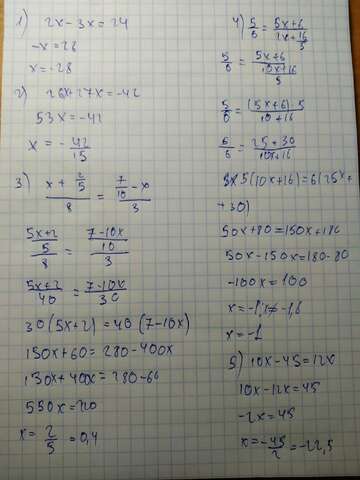 1) 2x - 3x = 24
-x = 28
x = -28
2) 26x + 27x = -42
53x = -42
x = - 42/15
3) (x + 2/5)/8 = (7/10 - x)/3
((5x+2)/5)/8 = ((7-10x)/10)/3
(5x+2)/40 = (7-10x)/30
30(5x+2) = 40(7-10x)
150x + 60 = 280 - 400x
150x + 400x = 280 - 60
550x = 220
x = 2/5 = 0,4
4) 5/6 = (5x+6)/(2x + 16/5)
5/6 = (5x+6)/((10x+16)/5)
5/6 = ((5x+6) 5)/(10+16)
5/6 = (25+30)/(10x+16)
5(10x+16) = 6(25x+
+30)
50x + 80 = 150x + 180
50x - 150x = 180 - 80
-100x = 100
x = -1, x ≠ -1,6
x = -1
5) 10x - 45 = 12x
10x - 12x = 45
-2x = 45
x = -45/2 = -22,5